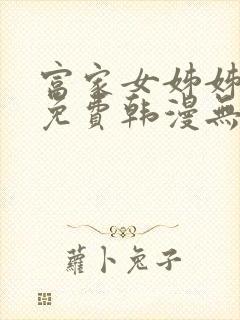 富家女姊姊
免費韩漫無
蘿卜兔子